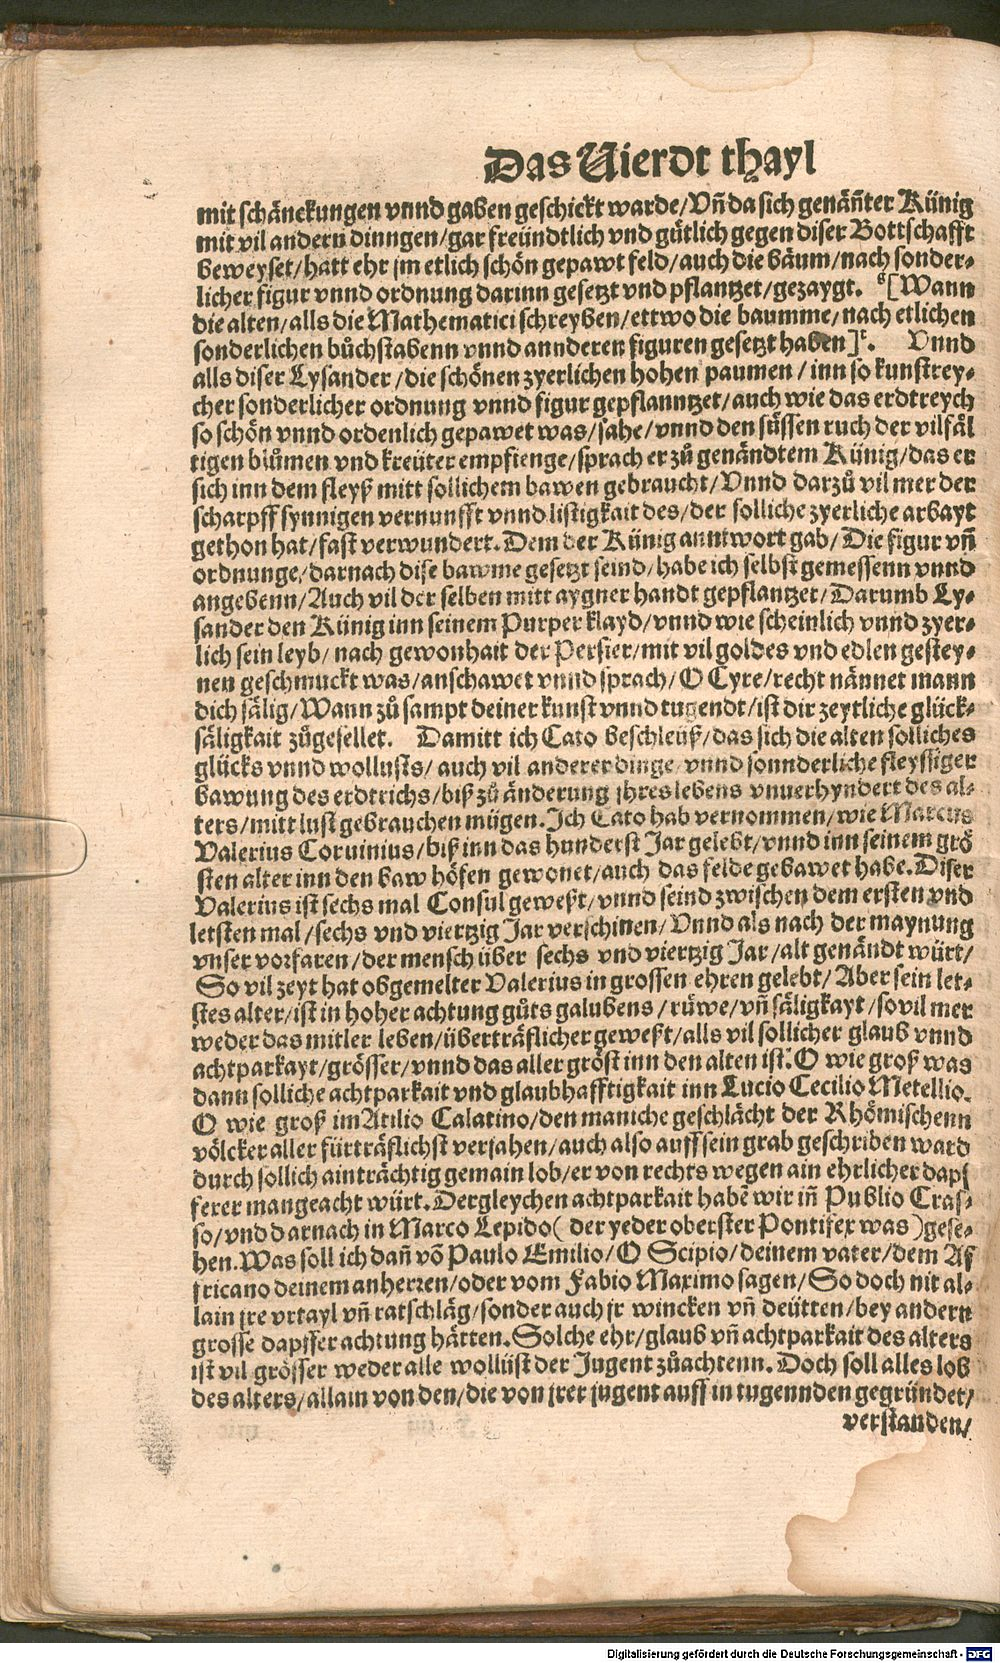 Das Vierdt thayl
mit schänckungen vnnd gaben geschickt warde/ Vn̄ da sich genän̄ter Künig
mit vil andern dinngen/ gar freündtlich vnd gůtlich gegen diser Bottschafft
beweyset/ hatt ehr jm etlich schön gepawt feld/ auch die bäum/ nach sonder⸗
licher figur vnnd ordnung darinn gesetzt vnd pflantzet/ gezaygt. [Wann
die alten/ alls die Mathematici schreyben/ ettwo die baumme/ nach etlichen
sonderlichen bůchstabenn vnnd annderen figuren gesetzt haben]. Vnnd
alls diser Lysander/ die schönen zyerlichen hohen paumen/ inn so kunstrey⸗
cher sonderlicher ordnung vnnd figur gepflanntzet/ auch wie das erdtreych
so schön vnnd ordenlich gepawet was/ sahe/ vnnd den süssen ruch der vilfäl
tigen blůmen vnd kreüter empfienge/ sprach er zů genändtem Künig/ das er
sich inn dem fleyß mitt sollichem bawen gebraucht/ Vnnd darzů vil mer der
scharpff synnigen vernunfft vnnd listigkait des/ der solliche zyerliche arbayt
gethon hat/ fast verwundert. Dem der Künig anntwort gab/ Die figur vn̄
ordnunge/ darnach dise bawme gesetzt seind/ habe ich selbst gemessenn vnnd
angebenn/ Auch vil der selben mitt aygner handt gepflantzet/ Darumb Ly⸗
sander den Künig inn seinem Purper klayd/ vnnd wie scheinlich vnnd zyer⸗
lich sein leyb/ nach gewonhait der Persier/ mit vil goldes vnd edlen gestey⸗
nen geschmuckt was/ anschawet vnnd sprach/ O Cyre/ recht nännet mann
dich sälig/ Wann zů sampt deiner kunst vnnd tugendt/ ist dir zeytliche glück⸗
säligkait zůgesellet. Damitt ich Cato beschleüß/ das sich die alten solliches
glücks vnnd wollusts/ auch vil anderer dinge vnnd sonnderliche fleyssiger
bawung des erdtrichs/ biß zů änderung jhres lebens vnuerhyndert des al⸗
ters/ mitt lust gebrauchen mügen. Ich Cato hab vernommen/ wie Marcus
Valerius Coruinius/ biß inn das hunderst Jar gelebt/ vnnd inn seinem grö
sten alter inn den baw höfen gewonet/ auch das felde gebawet habe. Diser
Valerius ist sechs mal Consul geweßt/ vnnd seind zwischen dem ersten vnd
letsten mal/ sechs vnd viertzig Jar verschinen/ Vnnd als nach der maynung
vnser vorfaren/ der mensch über sechs vnd viertzig Jar/ alt genändt würt/
So vil zeyt hat obgemelter Valerius in grossen ehren gelebt/ Aber sein let⸗
stes alter/ ist in hoher achtung gůts galubens/ růwe/ vn̄ säligkayt/ so vil mer
weder das mitler leben/ überträflicher geweßt/ alls vil sollicher glaub vnnd
achtparkayt/ grösser/ vnnd das aller gröst inn den alten ist. O wie groß was
dann solliche achtparkait vnd glaubhafftigkait inn Lucio Cecilio Metellio.
O wie groß im Atilio Calatino/ den maniche geschlächt der Rhömischenn
völcker aller fürträflichst verjahen/ auch also auff sein grab geschriben ward
durch sollich ainträchtig gemain lob/ er von rechts wegen ain ehrlicher dapf
ferer man geacht würt. Dergleychen achtparkait habē wir in̄ Publio Cras⸗
so/ vnd darnach in Marco Lepido (der yeder oberster Pontifex was) gese⸗
hen. Was soll ich dan̄ vō Paulo Emilio/ O Scipio/ deinem vater/ dem Af
fricano deinem anherren/ oder vom Fabio Maximo sagen/ So doch nit al⸗
lain jre vrtayl vn̄ ratschläg/ sonder auch jr wincken vn̄ deütten/ bey andern
grosse dapffer achtung hätten. Solche ehr/ glaub vn̄ achtparkait des alters
ist vil grösser weder alle wollüst der Jugent zůachtenn. Doch soll alles lob
des alters/ allain von den/ die von jrer jugent auff in tugennden gegründet/
verstanden/
Digitalisierung gefördert durch die Deutsche Forschungsgemeinschaft - DFG